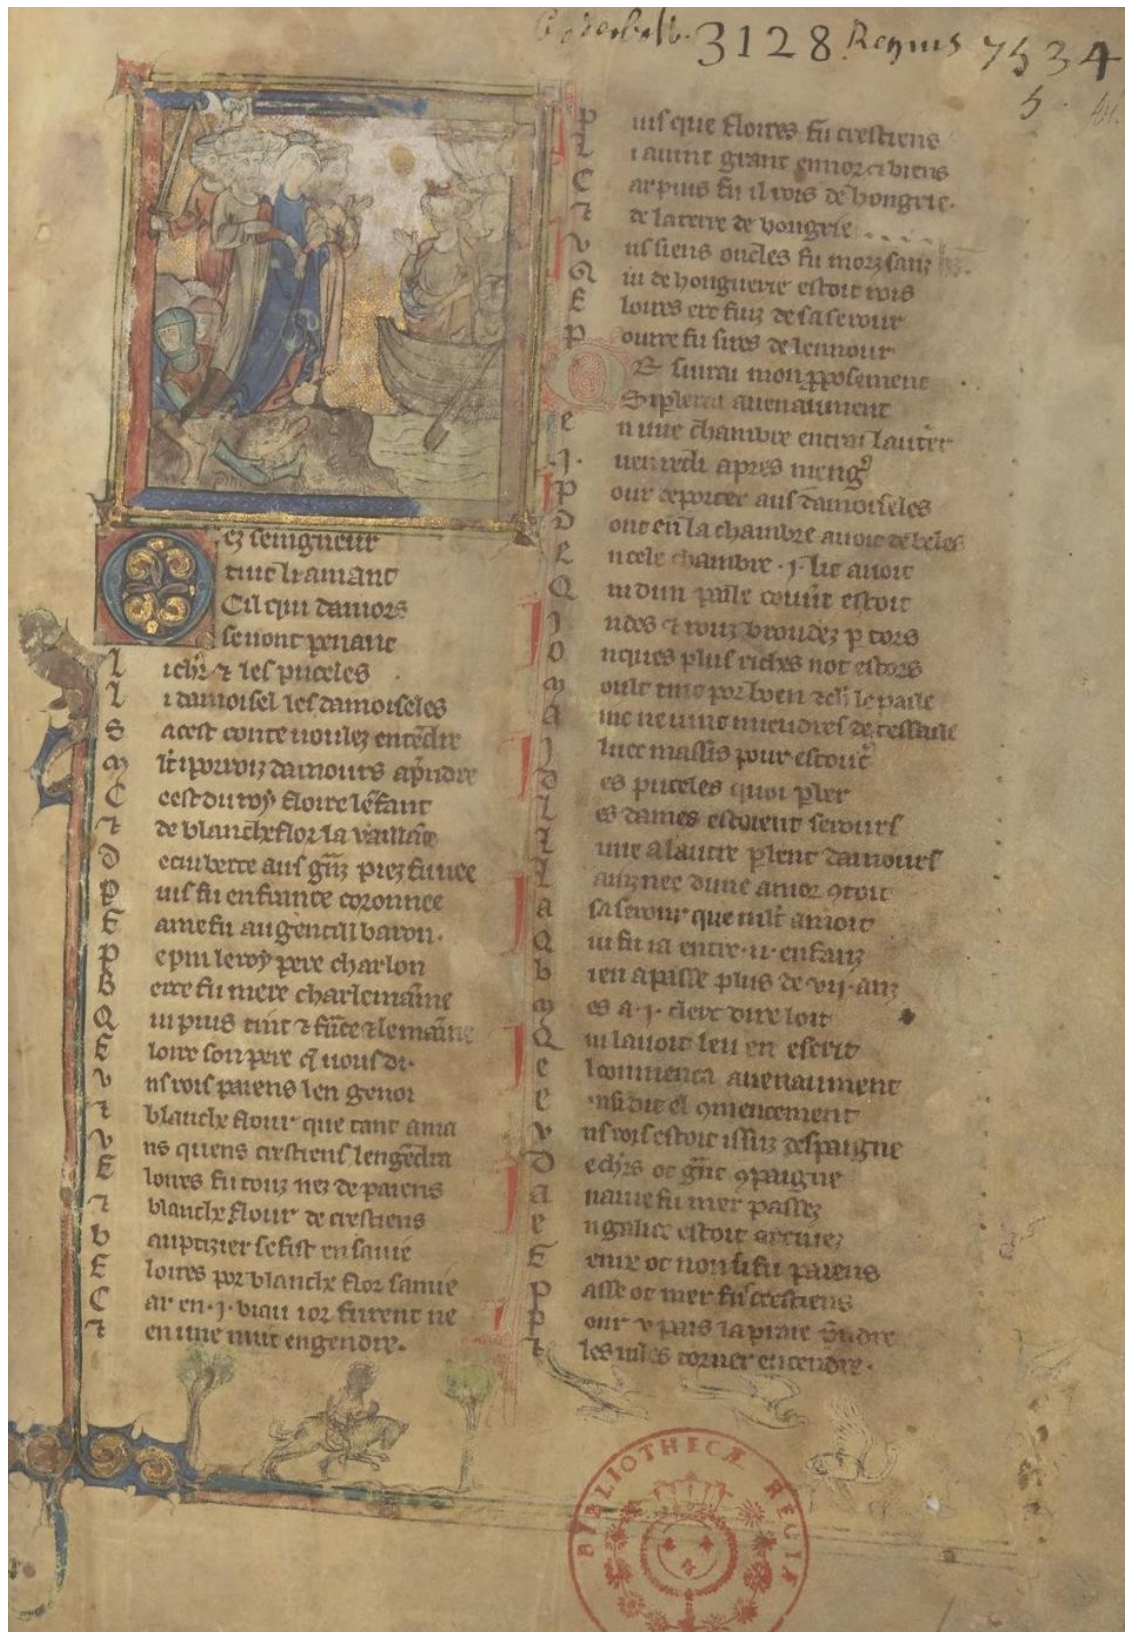 3128. Regius 7534
5.
Oez seingneur
tuit li amant
Cil qui damors
se vont penant
li chr̄ ⁊ les puceles
li damoisel les damoiseles
S acest conte voulez entēdre
mlt̄ i porroiz damours ap̄ndre
Cest du roy floire lēfant
⁊ de blancheflor la vaillāt
de cui berte aus grāz piez fu nee
puis fu en france coronnee
fame fu au gentil baron.
pepin le roy pere charlon
Berte fu mere charlemaine
Qui puis tint ⁊ frāce ⁊ le maine
floire son pere q̄ vous di.
vns rois paiens len genoi
⁊ blanche flour que tant ama
vns quens crestiens lengēdra
floires fu touz nez de paiens
⁊ blanche flour de crestiens
bauptizier se fist en sa vie
floires por blanche flor samie
Car en .j. biau ior furent ne
⁊ en une nuit engendre.
puis que floires fu crestiens
li avint grant ennor ⁊ biens
Car puis fu il rois de hongrie.
⁊ de la terre de vougrie
vns siens oncles fu morz sanz
Qui de honguerie estoit rois
floires ert fiuz de sa serour
pour ce fu sires de lennour
OR sivrai mon pp̄osement
Si pl̄erai avenaument
en une chambre entrai lautrer
.j. venredi apres meng̾
pour deporter aus damoiseles
dont en la chambre avoit de beles
en cele chambre .j. lit avoit
Qui dun paile couu̾t estoit
jndes ⁊ rouz broudez p̄ tors
onques plus riches not estors
moult tint por boen ⁊ chr̄ le paile
ainc ne vint mieudres de tessaile
jluec massis pour escout̾
des puceles quoi pl̄er
les dames estoient serours
lune a lautre pl̄ent damours
lauznee dune amor ꝯtoit
a sa serour que mlt̄ amoit
Qui fu ia entre .ii. enfanz
bien a passe plus de vij. anz
mes a .j. clerc dire loit
Qui lavoit leu en escrit
el commenca avenaument
ensi dit el ꝯmencement
vns rois estoit issuz despaigne
de chr̄s ot grāt ꝯpaigne
a navie fu mer passez
en galice estoit arrivez
fenix ot non si fu paiens
passe ot mer sus crestiens
pour v pais la praie p̄ndre
⁊ les viles torner en cendre.
BIBLIOTHECÆ REGIÆ